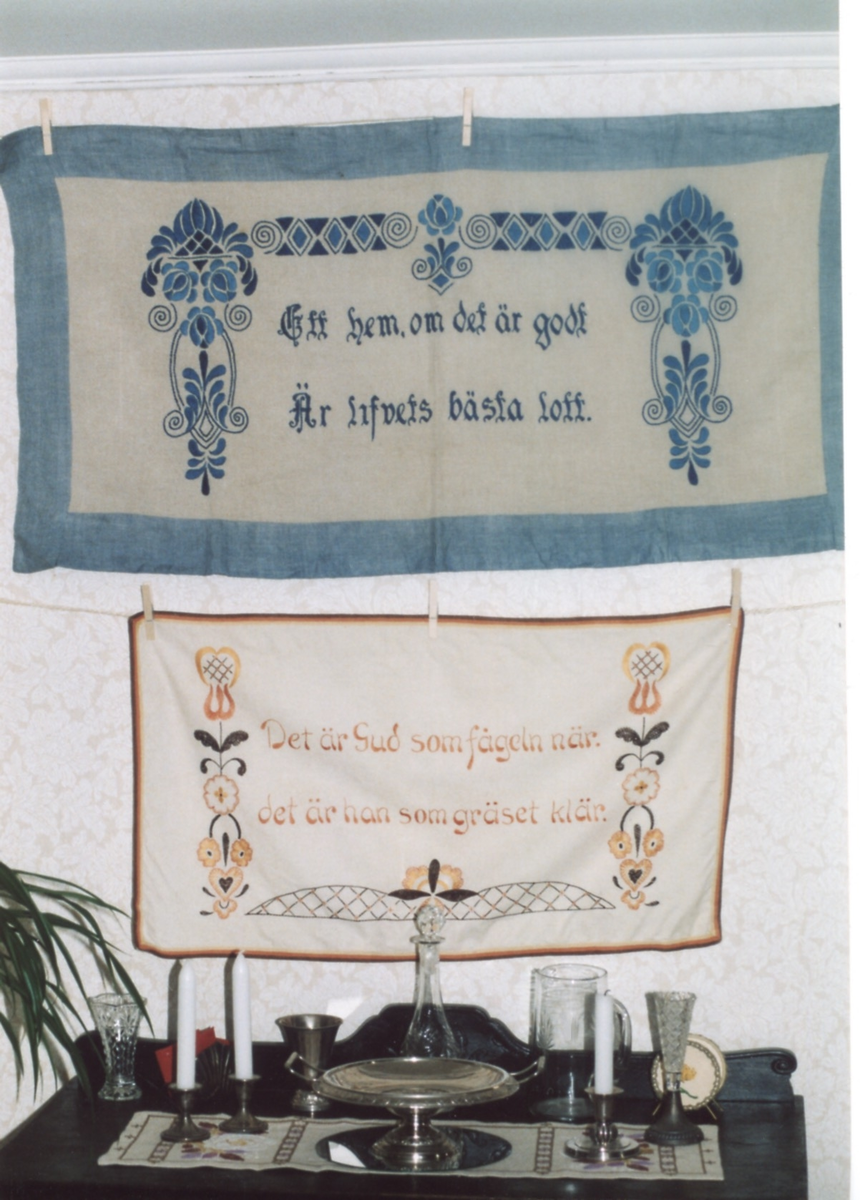 Ett hem, om det är godt
Är lifvets bästa lott.
Det är Gud som fågeln när.
det är han som gräset klär.